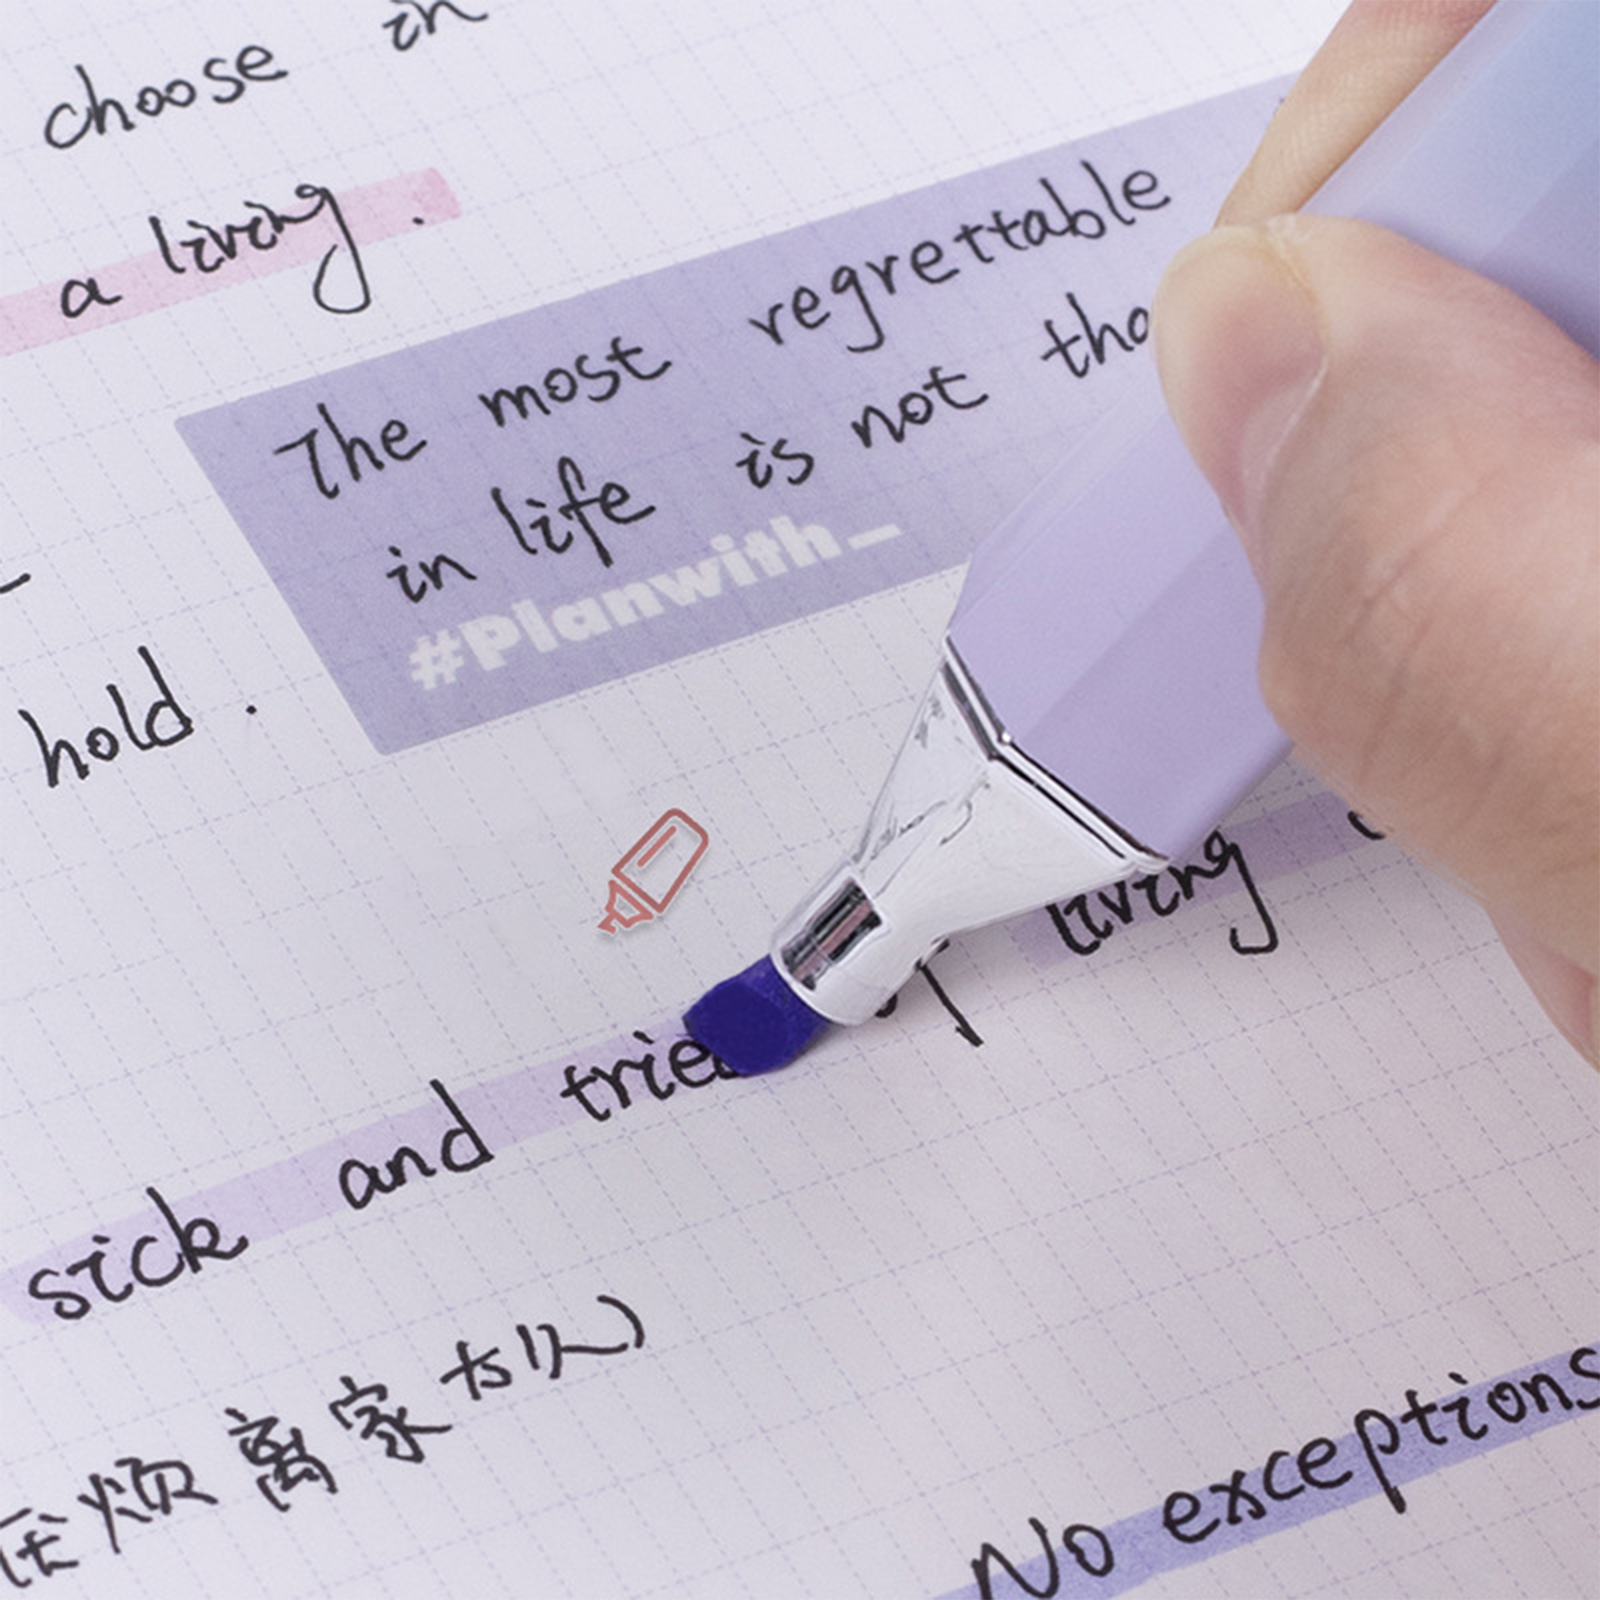 choose in
a living.
The most regrettable
in life is not tha
#Planwith_
hold.
living
sick and tried
厌烦离家
No exceptions